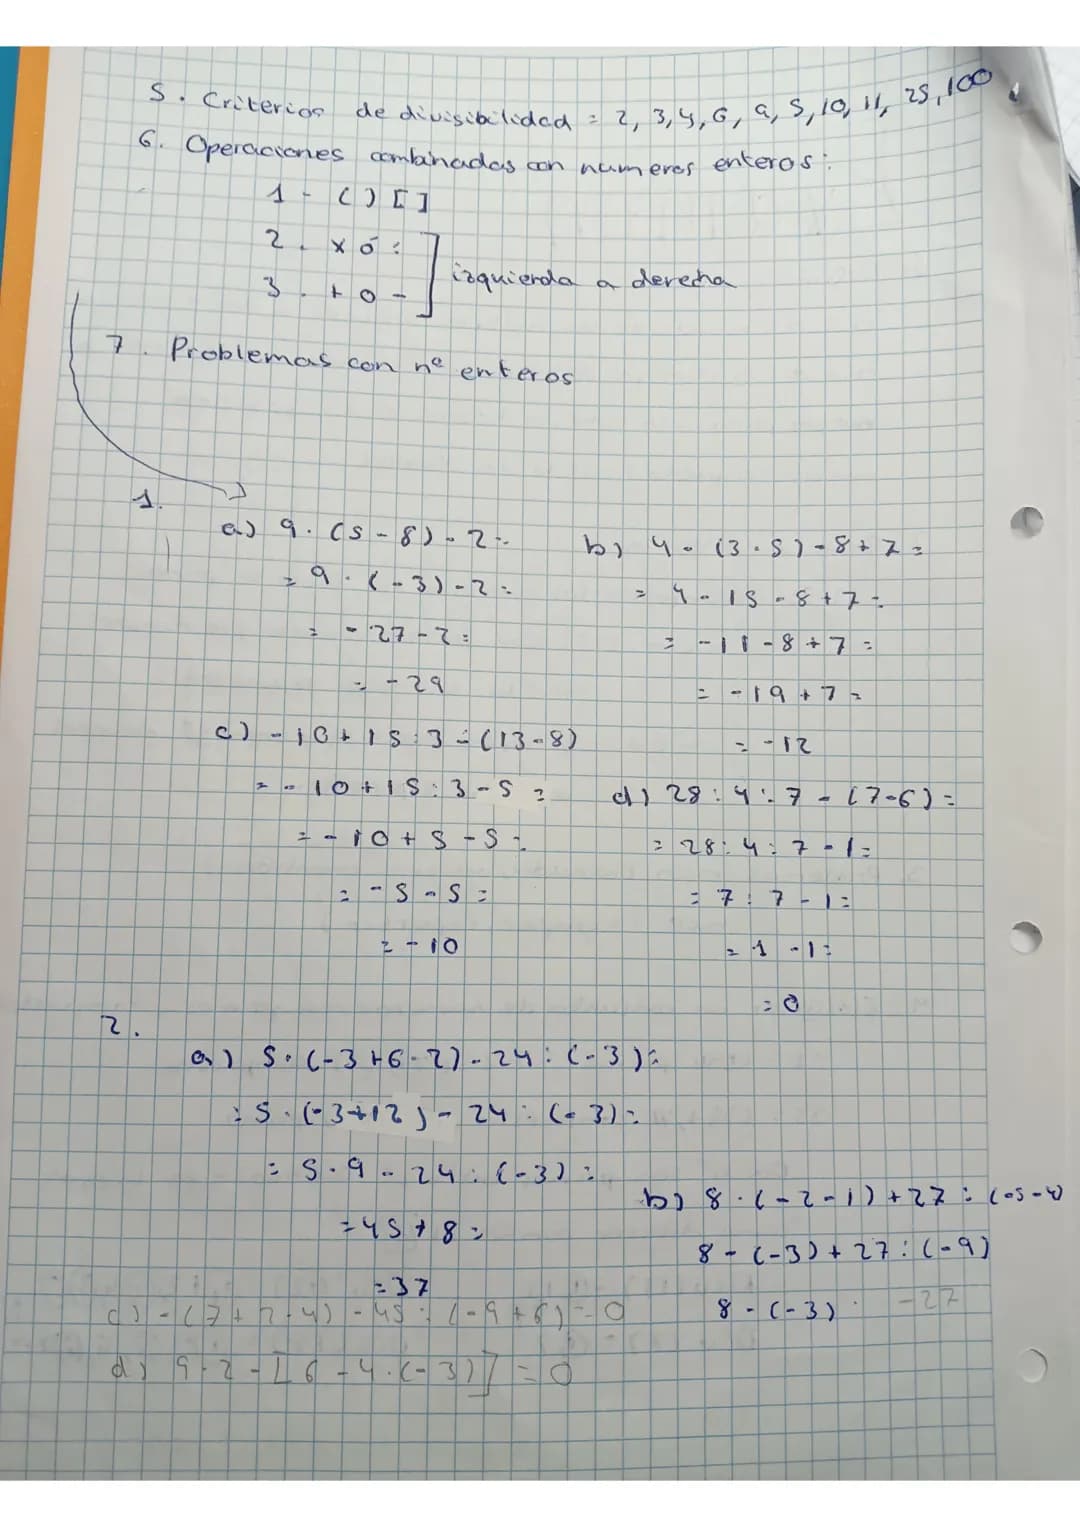 5. Criterios de divisibilidad = 2, 3, 4, 6, 9, 5, 10, 11, 25, 100
6. Operaciones combinadas con numeros enteros:
1 - ( ) [ ]
2. x ó :
3. + o -
izquierda a derecha
7. Problemas con nº enteros
1.
a) 9 · (5 - 8) - 2 =
= 9 · (-3) - 2 =
= -27 - 2 =
= -29
b) 4 - (3 · 5) - 8 + 7 =
= 4 - 15 - 8 + 7 =
= -11 - 8 + 7 =
= -19 + 7 =
= -12
c) -10 + 15 : 3 - (13 - 8)
= -10 + 15 : 3 - 5 =
= -10 + 5 - 5 =
= -5 - 5 =
= -10
d) 28 : 4 : 7 - (7 - 6) =
= 28 : 4 : 7 - 1 =
= 7 : 7 - 1 =
= 1 - 1 =
= 0
2.
a) 5 · (-3 + 6 · 2) - 24 : (-3) =
= 5 · (-3 + 12) - 24 : (-3) =
= 5 · 9 - 24 : (-3) =
= 45 + 8 =
= 37
b) 8 · (-2 - 1) + 27 : (-5 - 4)
8 - (-3) + 27 : (-9)
8 - (-3) : -27
c) - (7 + 2 · 4) - 45 : (-9 + 6) = 0
d) 9 · 2 - [6 - 4 · (-3)] = 0